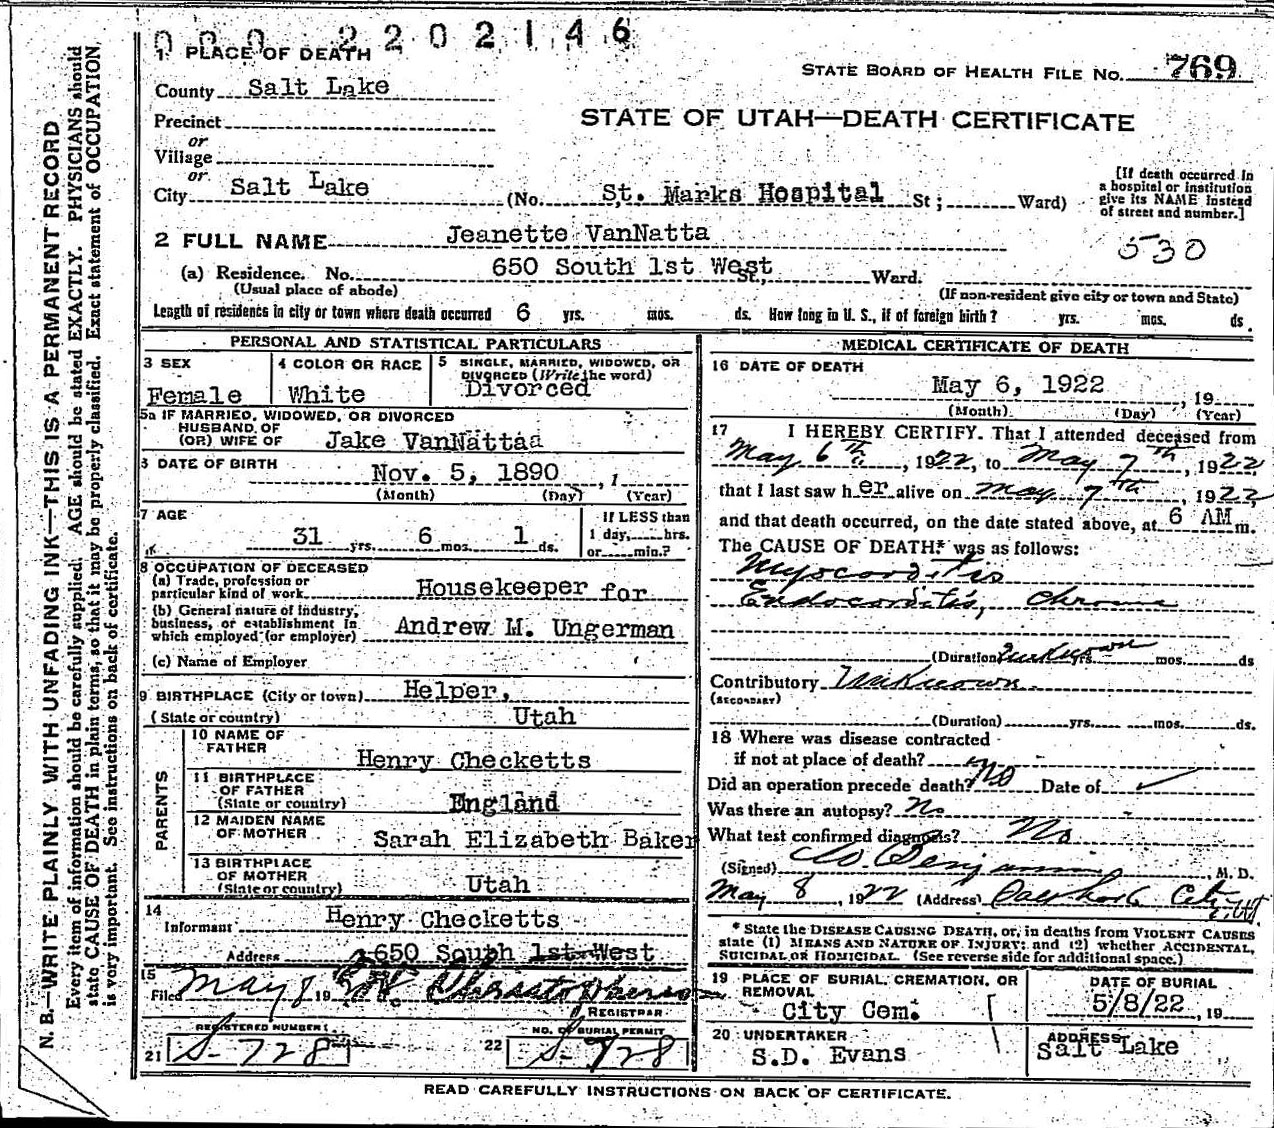 000 2202146
1 PLACE OF DEATH
STATE BOARD OF HEALTH FILE NO. 769
County Salt Lake
STATE OF UTAH—DEATH CERTIFICATE
Precinct
or
Village
or
City Salt Lake (No. St. Marks Hospital St; Ward)
[If death occurred in
a hospital or institution
give its NAME instead
of street and number.]
2 FULL NAME Jeanette VanNatta
530
(a) Residence. No. 650 South 1st West St., Ward.
(Usual place of abode) (If non-resident give city or town and State)
Length of residence in city or town where death occurred 6 yrs. mos. ds. How long in U. S., if of foreign birth? yrs. mos. ds.
PERSONAL AND STATISTICAL PARTICULARS
3 SEX
Female
4 COLOR OR RACE
White
5 SINGLE, MARRIED, WIDOWED, OR
DIVORCED (Write the word)
Divorced
5a IF MARRIED, WIDOWED, OR DIVORCED
HUSBAND OF
(OR) WIFE OF Jake VanNattaa
6 DATE OF BIRTH
Nov. 5, 1890, 1
(Month) (Day) (Year)
7 AGE
31 yrs. 6 mos. 1 ds.
If LESS than
1 day, hrs.
or min.?
8 OCCUPATION OF DECEASED
(a) Trade, profession or
particular kind of work Housekeeper for
(b) General nature of industry,
business, or establishment in
which employed (or employer) Andrew M. Ungerman
(c) Name of Employer
9 BIRTHPLACE (City or town) Helper,
(State or country) Utah
PARENTS
10 NAME OF
FATHER
Henry Checketts
11 BIRTHPLACE
OF FATHER
(State or country) England
12 MAIDEN NAME
OF MOTHER Sarah Elizabeth Baker
13 BIRTHPLACE
OF MOTHER
(State or country) Utah
14
Informant Henry Checketts
Address 650 South 1st West
15
Filed May 8 19
REGISTRAR
REGISTERED NUMBER
21 S-728
NO. OF BURIAL PERMIT
22 S-728
MEDICAL CERTIFICATE OF DEATH
16 DATE OF DEATH
May 6, 1922, 19
(Month) (Day) (Year)
17 I HEREBY CERTIFY. That I attended deceased from
May 6th, 1922, to May 7th, 1922
that I last saw her alive on May 7th, 1922,
and that death occurred, on the date stated above, at 6 AM m.
The CAUSE OF DEATH* was as follows:
Myocorditis
Endocorditis, Chronic
(Duration Unknown yrs. mos. ds
Contributory Unknown
(SECONDARY)
(Duration) yrs. mos. ds.
18 Where was disease contracted
if not at place of death?
Did an operation precede death? No Date of ✓
Was there an autopsy? No
What test confirmed diagnosis? No
(Signed) Benjamin, M. D.
May 8, 1922 (Address) Salt Lake City Ut
* State the DISEASE CAUSING DEATH, or, in deaths from VIOLENT CAUSES
state (1) MEANS AND NATURE OF INJURY; and (2) whether ACCIDENTAL,
SUICIDAL OR HOMICIDAL. (See reverse side for additional space.)
19 PLACE OF BURIAL, CREMATION, OR
REMOVAL
City Cem.
DATE OF BURIAL
5/8/22, 19
20 UNDERTAKER
S.D. Evans
ADDRESS
Salt Lake
READ CAREFULLY INSTRUCTIONS ON BACK OF CERTIFICATE.
N. B.—WRITE PLAINLY WITH UNFADING INK—THIS IS A PERMANENT RECORD
Every item of information should be carefully supplied. AGE should be stated EXACTLY. PHYSICIANS should
state CAUSE OF DEATH in plain terms, so that it may be properly classified. Exact statement of OCCUPATION
is very important. See instructions on back of certificate.